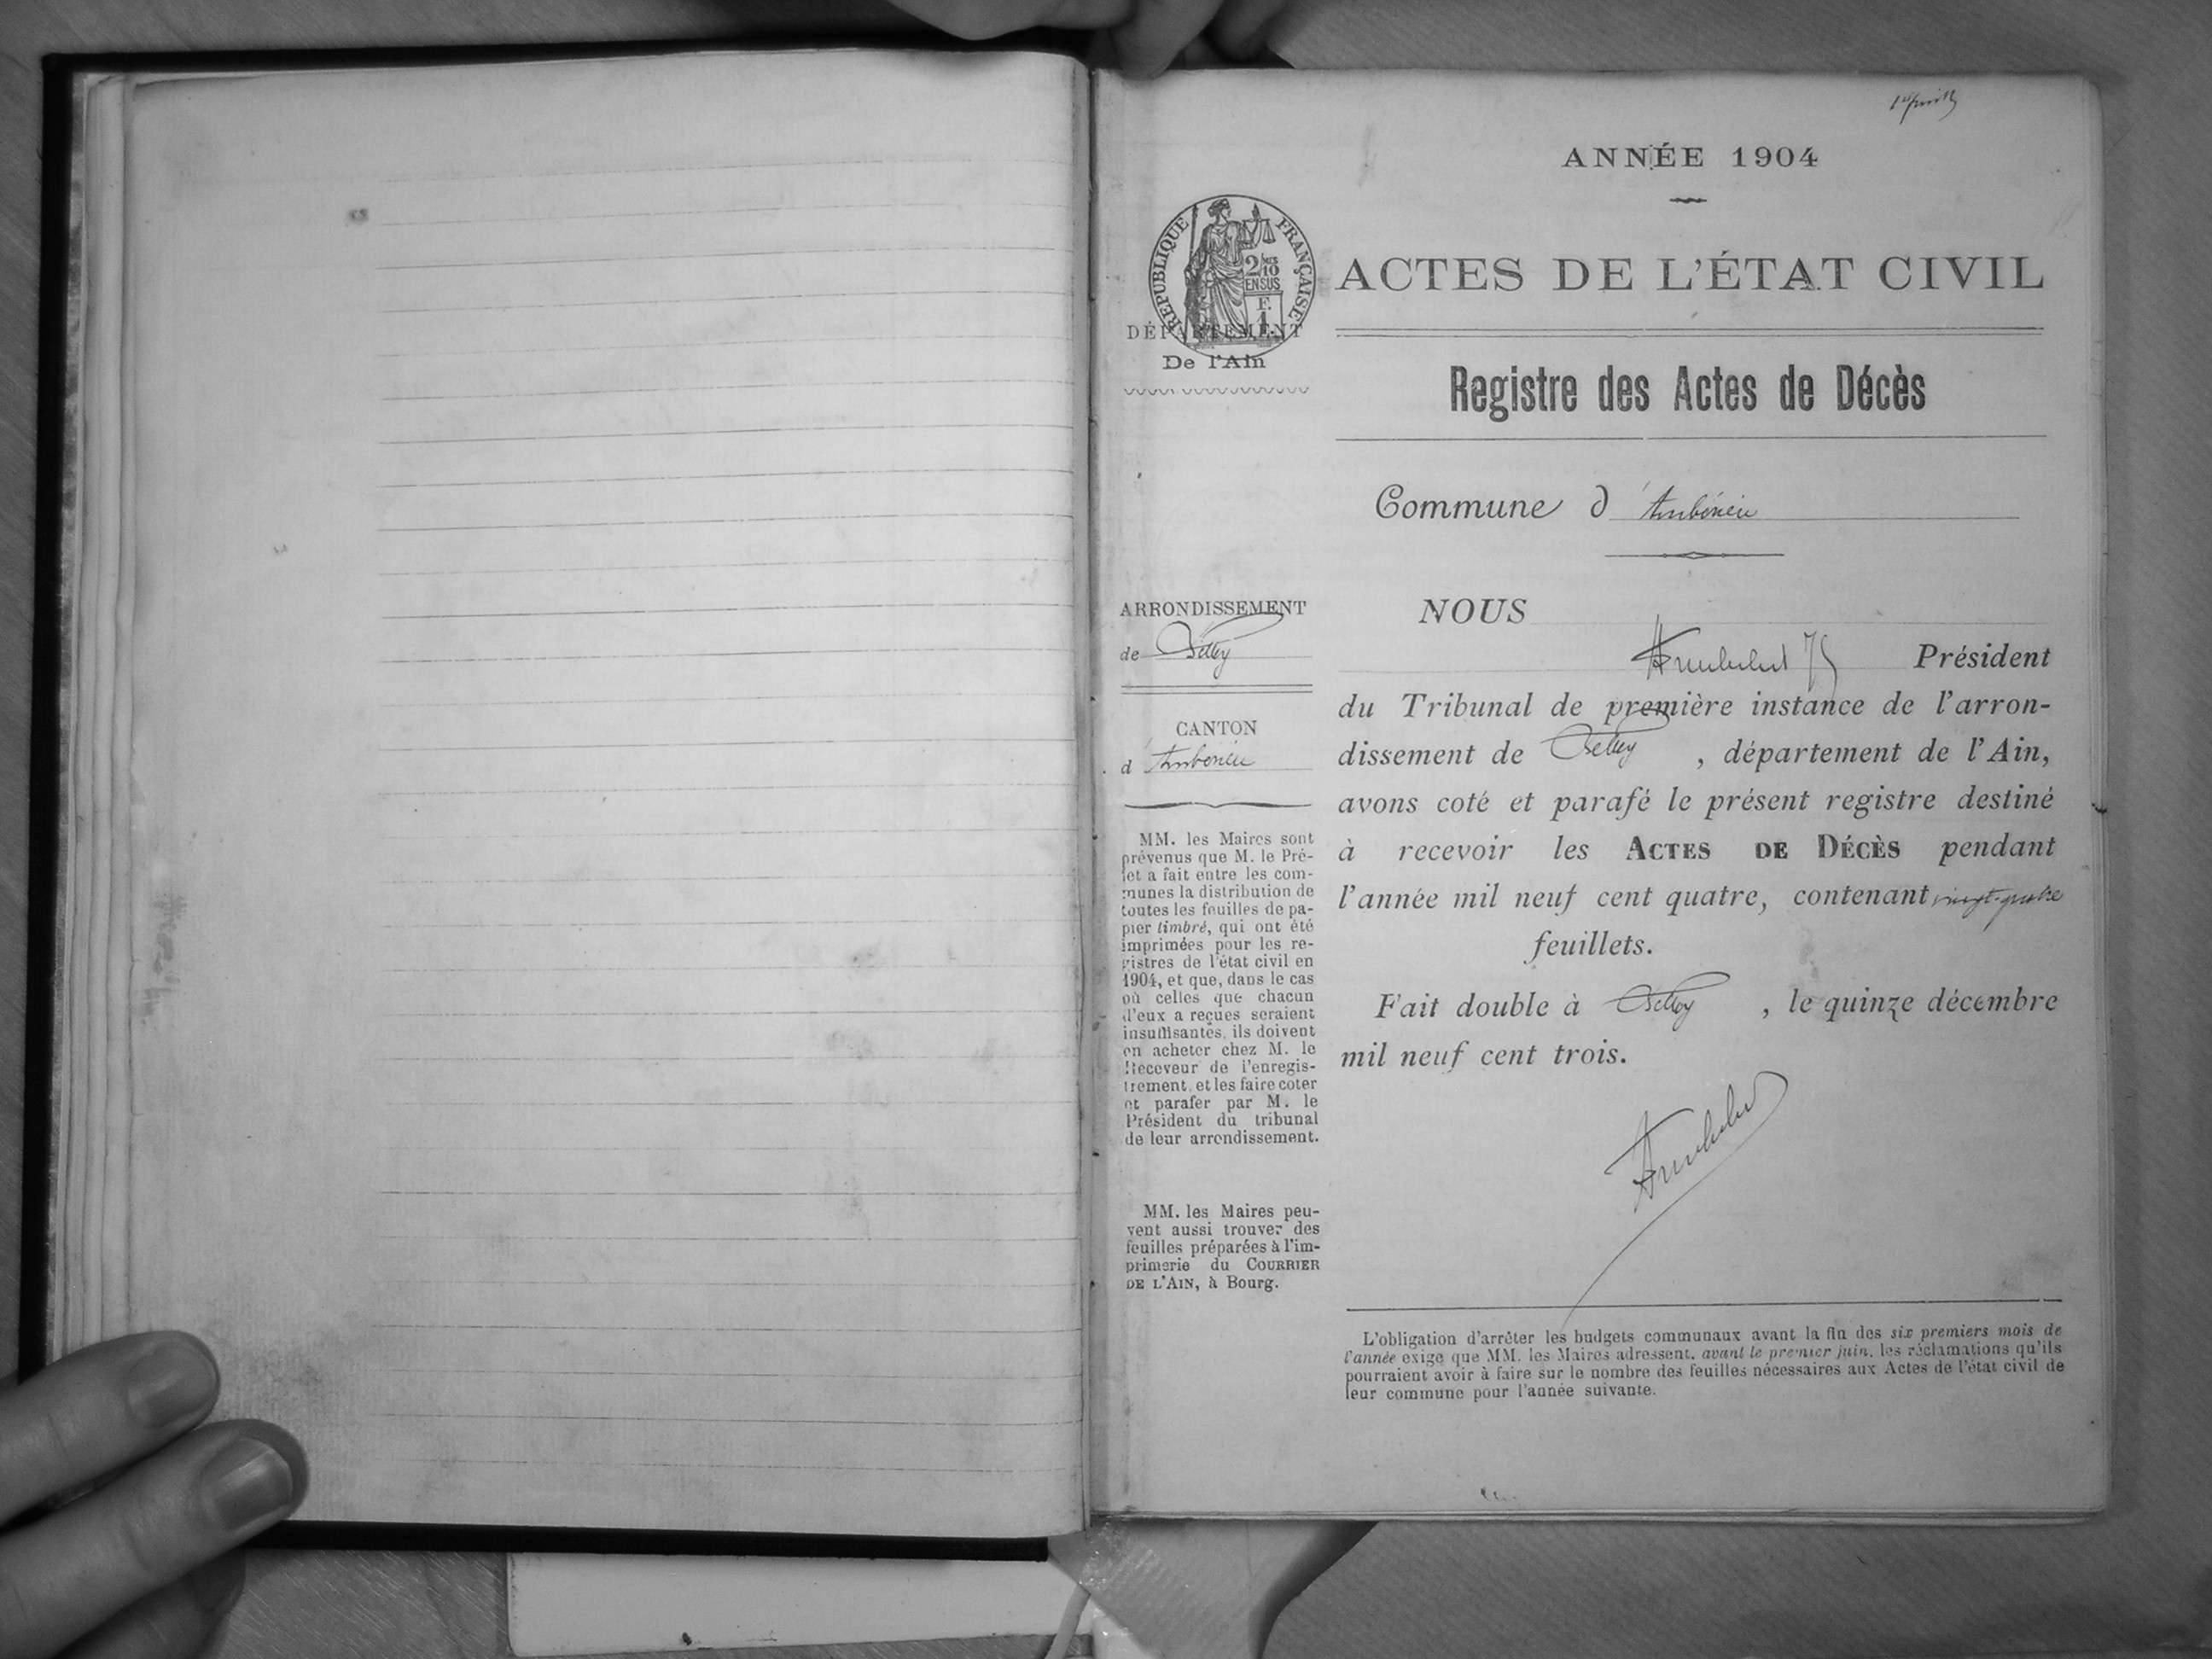 1er feuillet
ANNÉE 1904
RÉPUBLIQUE FRANÇAISE
2/10
EN SUS
F.
1
ACTES DE L'ÉTAT CIVIL
DÉPARTEMENT
De l'Ain
Registre des Actes de Décès
Commune d'Ambérieu
ARRONDISSEMENT
de Belley
CANTON
d'Ambérieu
MM. les Maires sont
prévenus que M. le Pré-
fet a fait entre les com-
munes la distribution de
toutes les feuilles de pa-
pier timbré, qui ont été
imprimées pour les re-
gistres de l'état civil en
1904, et que, dans le cas
où celles que chacun
d'eux a reçues seraient
insuffisantes, ils doivent
en acheter chez M. le
Receveur de l'enregis-
trement, et les faire coter
et parafer par M. le
Président du tribunal
de leur arrondissement.
MM. les Maires peu-
vent aussi trouver des
feuilles préparées à l'im-
primerie du COURRIER
DE L'AIN, à Bourg.
NOUS
Président
du Tribunal de première instance de l'arron-
dissement de Belley, département de l'Ain,
avons coté et parafé le présent registre destiné
à recevoir les ACTES DE DÉCÈS pendant
l'année mil neuf cent quatre, contenant vingt-quatre
feuillets.
Fait double à Belley, le quinze décembre
mil neuf cent trois.
L'obligation d'arrêter les budgets communaux avant la fin des six premiers mois de
l'année exige que MM. les Maires adressent, avant le premier juin, les réclamations qu'ils
pourraient avoir à faire sur le nombre des feuilles nécessaires aux Actes de l'état civil de
leur commune pour l'année suivante.